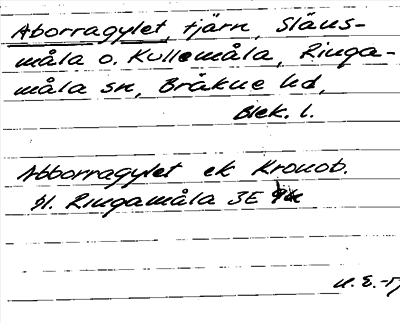 Aborragylet, tjärn, Släns-
måla o. Kullemåla, Ringa-
måla sn, Bräkne hd,
Blek. l.
Abborragylet ek Kronob.
pl. Ringamåla 3E